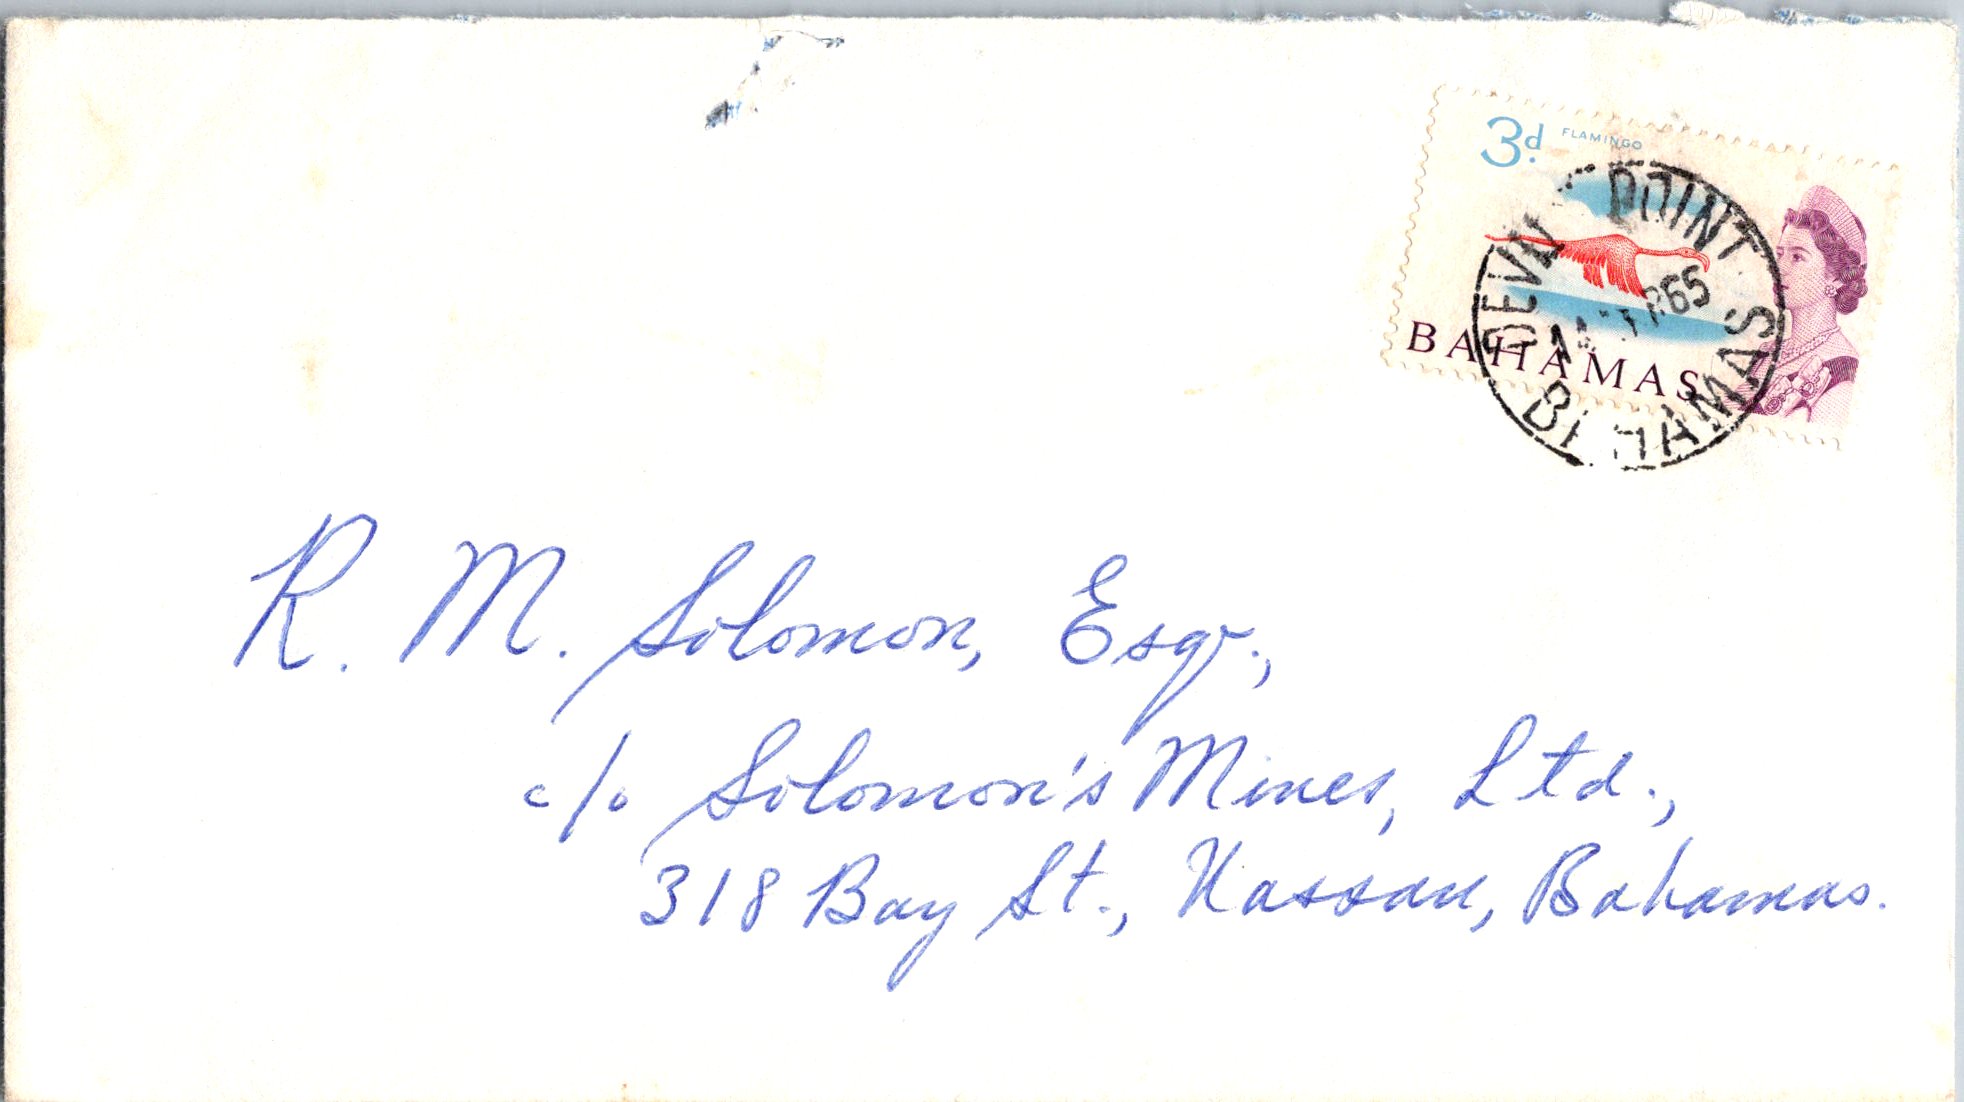 3d. FLAMINGO
BAHAMAS
POINT
BAHAMAS
R. M. Solomon, Esqr.,
c/o Solomon's Mines, Ltd.,
318 Bay St., Nassau, Bahamas.